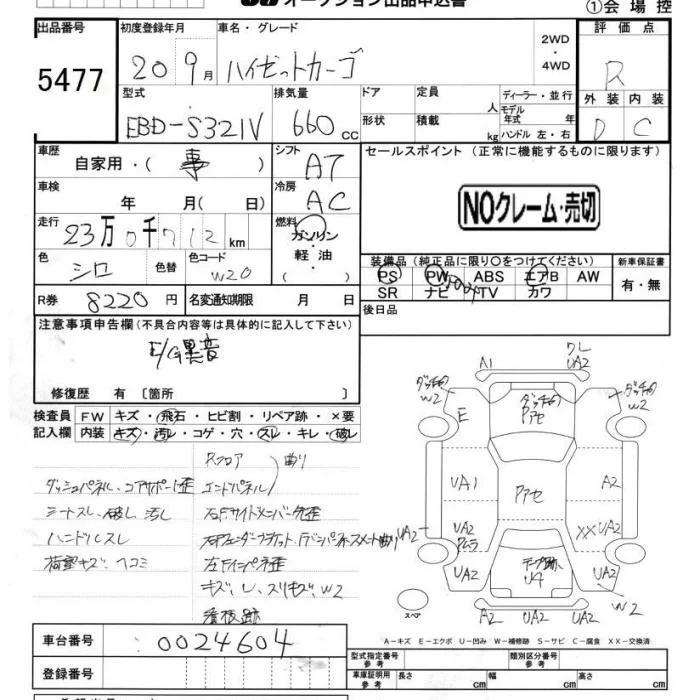 オークション出品申込書
①会場控
出品番号
5477
初度登録年月
20 9月
車名・グレード
ハイゼットカーゴ
2WD
・
4WD
評価点
R
型式
EBD-S321V
排気量
660 cc
ドア
形状
定員 人
積載 kg
ディーラー・並行
モデル年式 年
ハンドル 左・右
外装 内装
D C
車歴
自家用・( )
シフト
AT
セールスポイント (正常に機能するものに限ります)
車検
年 月( 日)
冷房
AC
NOクレーム・売切
走行
23万0千712km
燃料
ガソリン
・
軽油
( )
色
シロ
色替
色コード
W20
装備品 (純正品に限り○をつけてください)
新車保証書
PS PW ABS エアB AW
SR ナビ TV カワ
有・無
R券
8220円
名変通知期限 月 日
後日品
注意事項申告欄 (不具合内容等は具体的に記入して下さい)
E/G異音
修復歴 有 〔箇所 〕
検査員 FW キズ・飛石・ヒビ割・リペア跡・×要
記入欄 内装 キズ・汚レ・コゲ・穴・スレ・キレ・破レ
Rフロア 曲り
ダッシュパネル、コアサポート歪 エンドパネル
シートスレ、破レ、汚レ
ハンドルスレ
荷室キズ、ヘコミ 左Fインパネ歪
キズ、U、スリキズ、W2
看板跡
A1
ワレ
UA2
ダッチャク
W2
ダッチャク
アセ
ダッチャク
W2
E
UA1
アセ
A2
UA2
UA2
XX UA2
UA2
テープ跡
U4
UA2
W2
スペア
A2
UA2
A-キズ E-エクボ U-凹み W-補修跡 S-サビ C-腐食 XX-交換済
車台番号
0024604
登録番号
型式指定番号
参考
類別区分番号
参考
車庫証明用
参考
長さ cm 幅 cm 高さ cm